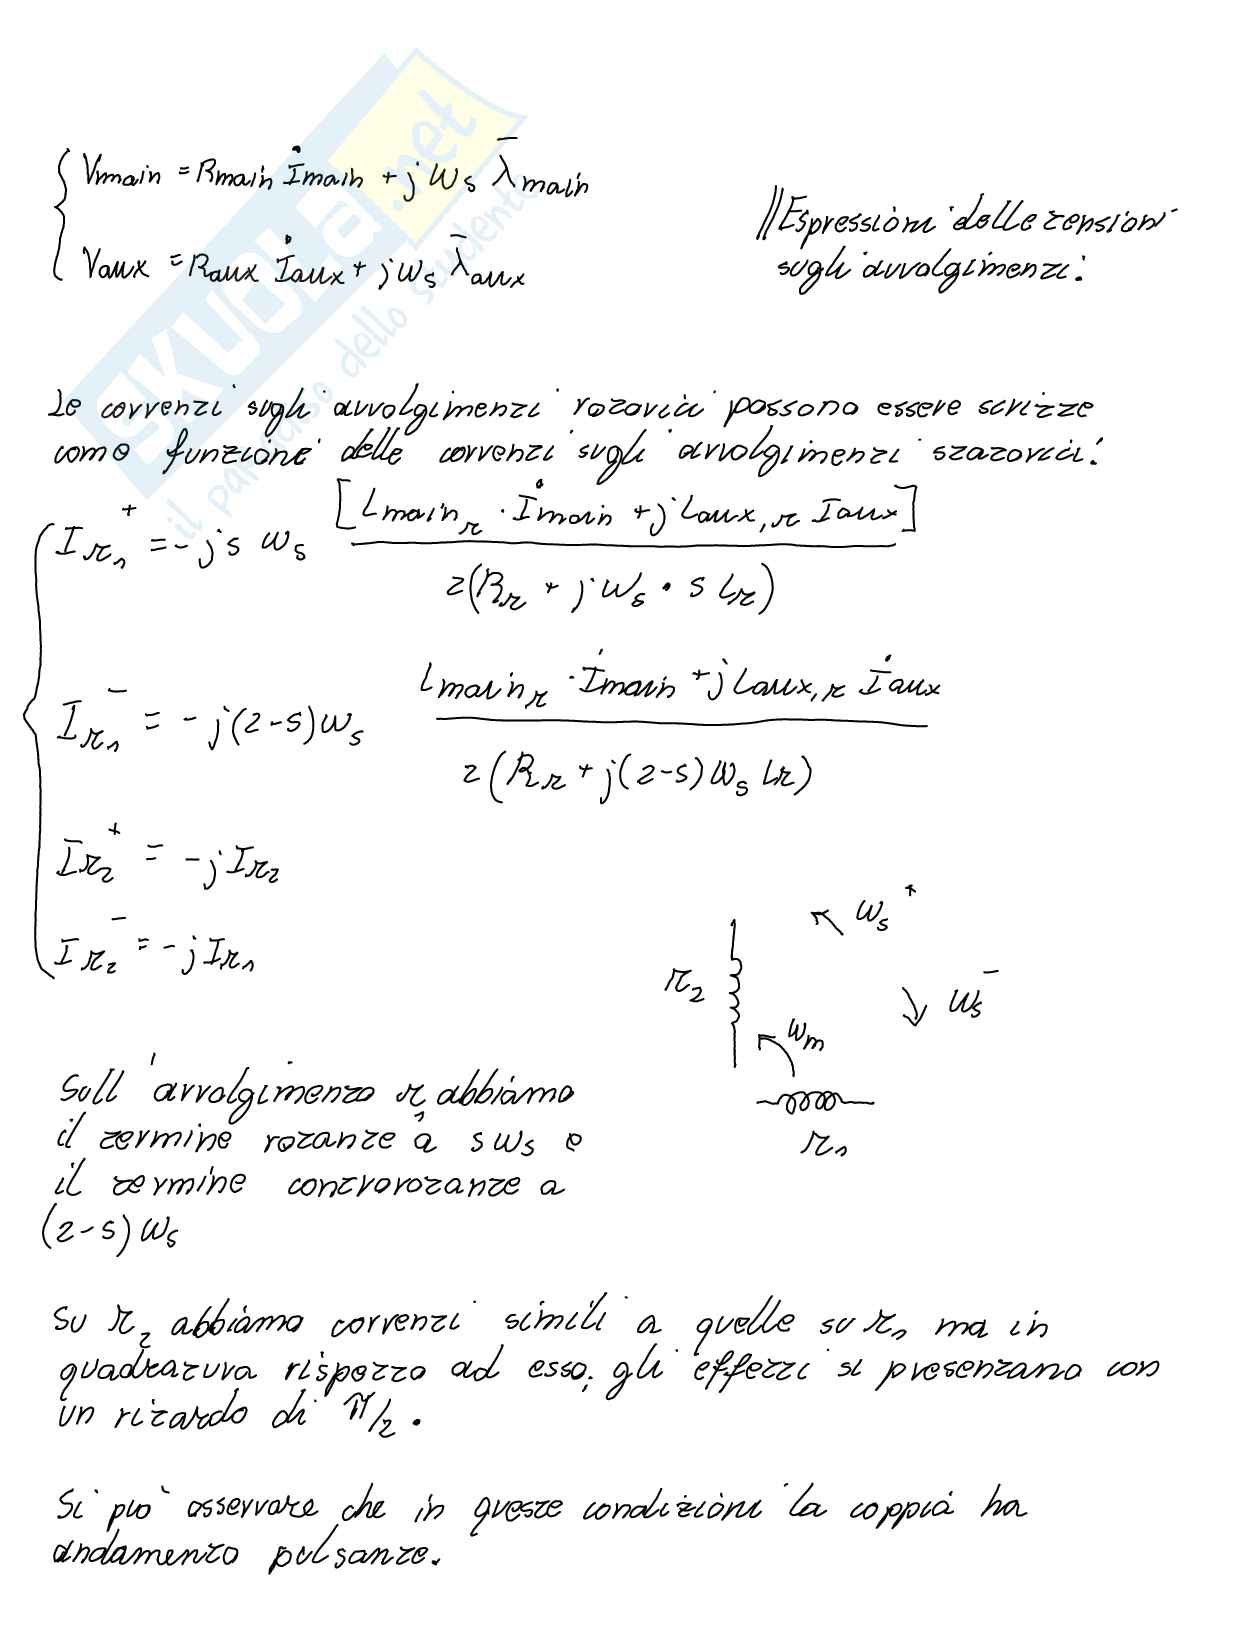 Vmain = Rmain İmain + jωs λ̄main
Vaux = Raux İaux + jωs λ̄aux
//Espressioni delle tensioni
sugli avvolgimenti:
Le correnti sugli avvolgimenti rotorici possono essere scritte
come funzione delle correnti sugli avvolgimenti statorici:
Ir1⁺ = -js ωs [Lmain_r · İmain + jLaux,r Iaux] / 2(Rr + jωs · s Lr)
Ir1⁻ = -j(2-s)ωs Lmain_r · İmain + jLaux,r İaux / 2(Rr + j(2-s)ωs Lr)
Ir2⁺ = -jIr2
Ir2⁻ = -jIr1
ωs⁺
r2
ωs⁻
ωm
r1
Sull'avvolgimento r1 abbiamo
il termine rotante a sωs e
il termine controrotante a
(2-s)ωs
Su r2 abbiamo correnti simili a quelle su r1 ma in
quadratura rispetto ad esso; gli effetti si presentano con
un ritardo di π/2.
Si può osservare che in queste condizioni la coppia ha
andamento pulsante.
SKUOLA.net
il paradiso dello studente